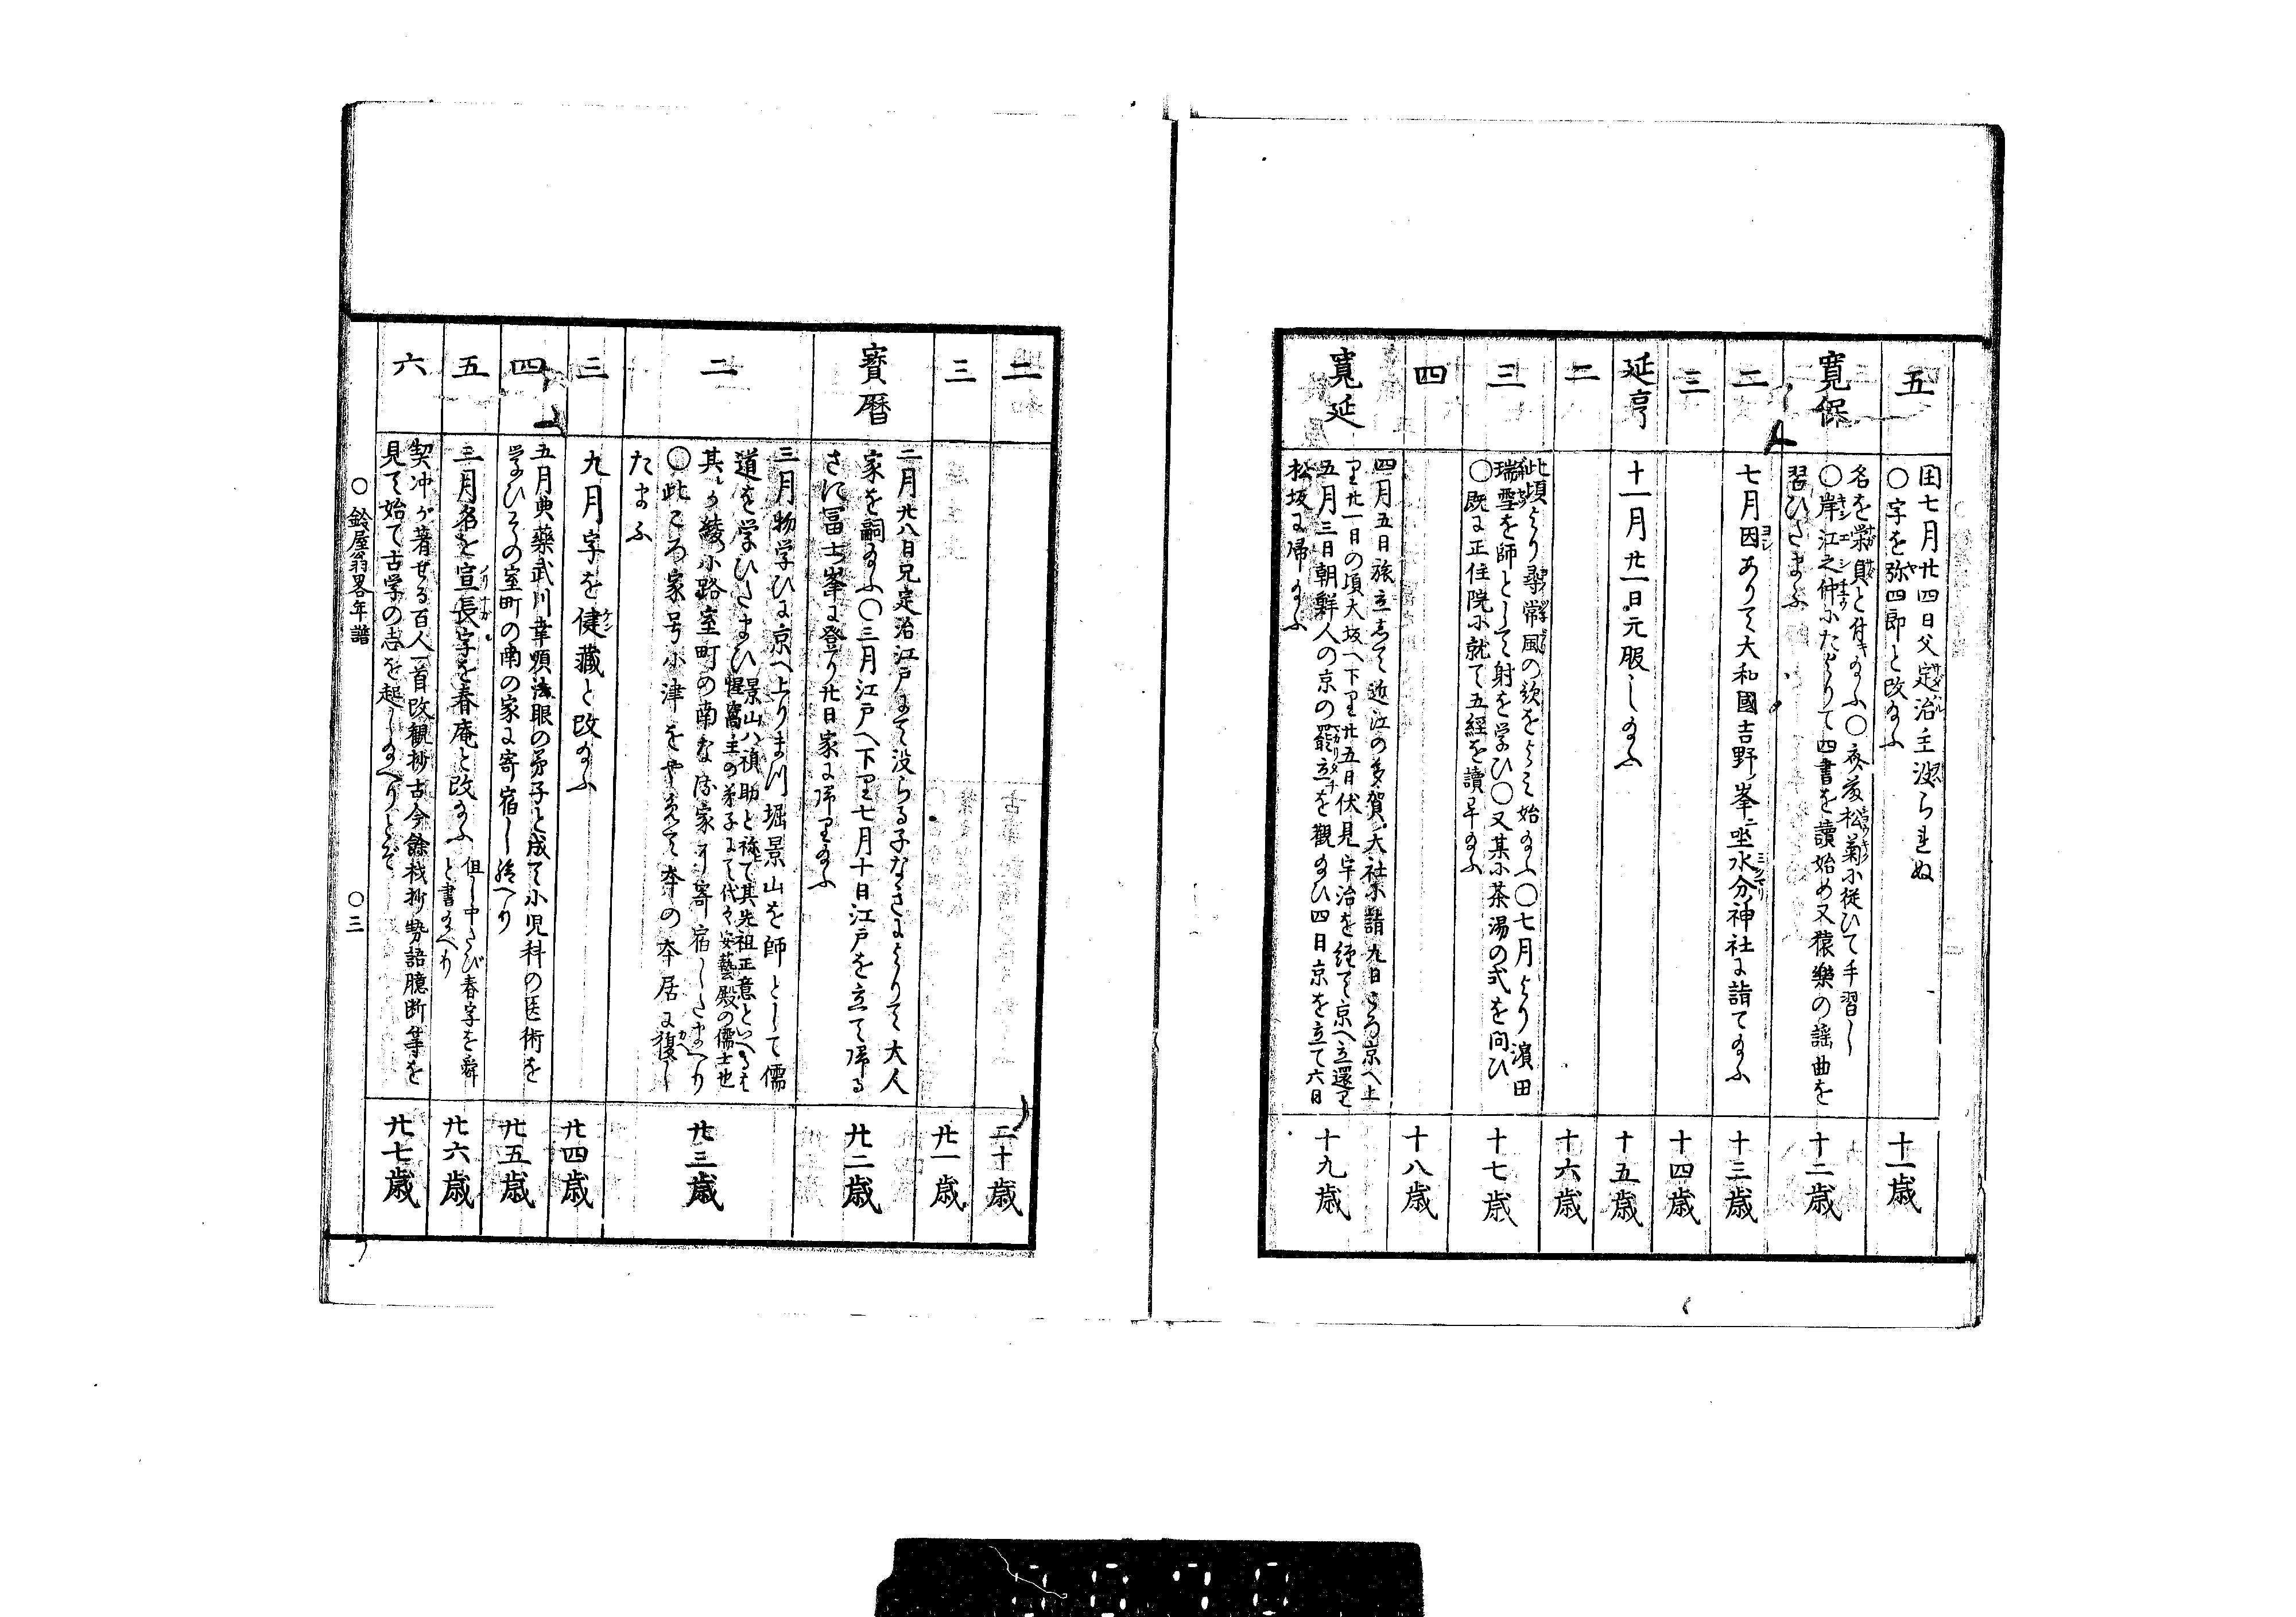 五
閏七月廿四日父定治主没られぬ
〇字を弥四郎と改給ふ
十一歳
寛保
名を栄貞と付き給ふ〇斎藤松菊に従ひて手習し
〇岸江之仲にたよりて四書を讀始め又猿樂の謡曲を
習ひたまふ
十二歳
二
七月因ありて大和國吉野ノ峯ニ坐水分神社に詣て給ふ
十三歳
三
十四歳
延享
十一月廿一日元服し給ふ
十五歳
二
十六歳
三
此頃より尋常風の歌をよミ始給ふ〇七月より濱田
瑞雪を師として射を学ひ〇又某に茶湯の式を問ひ
〇既に正住院に就て五経を讀畢給ふ
十七歳
四
十八歳
寛延
四月五日旅立志て近江の多賀ノ大社に詣九日ころ京へ上
り廿一日の頃大坂へ下り廿五日伏見宇治を経て京へ立還り
五月三日朝鮮人の京の罷立を觀給ひ四日京を立て六日
松坂に帰給ふ
十九歳
二
二十歳
三
廿一歳
寶暦
二月廿八日兄定治江戸にて没らる子なきによりて大人
家を嗣給ふ〇三月江戸へ下り七月十日江戸を立て帰る
さに冨士ノ峯に登り廿日家に帰り給ふ
廿二歳
二
三月物学ひに京へ上りまし堀景山を師として儒
道を学ひたまひ景山ハ禎助と称て其先祖正意といへるは
惺窩主の弟子にて代々安藝殿の儒士也
其か綾小路室町の南なる家に寄宿したまへり
〇此ころ家号小津をやめて本の本居に復し
たまふ
廿三歳
三
九月字を健蔵と改給ふ
廿四歳
四
五月典藥武川幸順法眼の弟子と成て小児科の医術を
学ひその室町の南の家に寄宿し給へり
廿五歳
五
三月名を宣長字を春庵と改給ふ 但し中たび春字を舜
と書給へり
廿六歳
六
契冲か著せる百人一首改観抄古今餘材抄勢語臆断等を
見て始て古学の志を起し給へりとぞ
廿七歳
〇鈴屋翁畧年譜
〇三